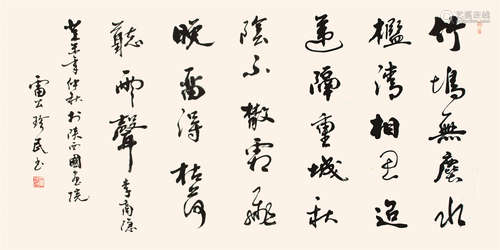 竹塢無塵水
檻清相思迢
遞隔重城秋
陰不散霜飛
晚留得枯荷
聽雨聲 李商隱
癸未年仲秋於陝西國畫院
雷珍民书